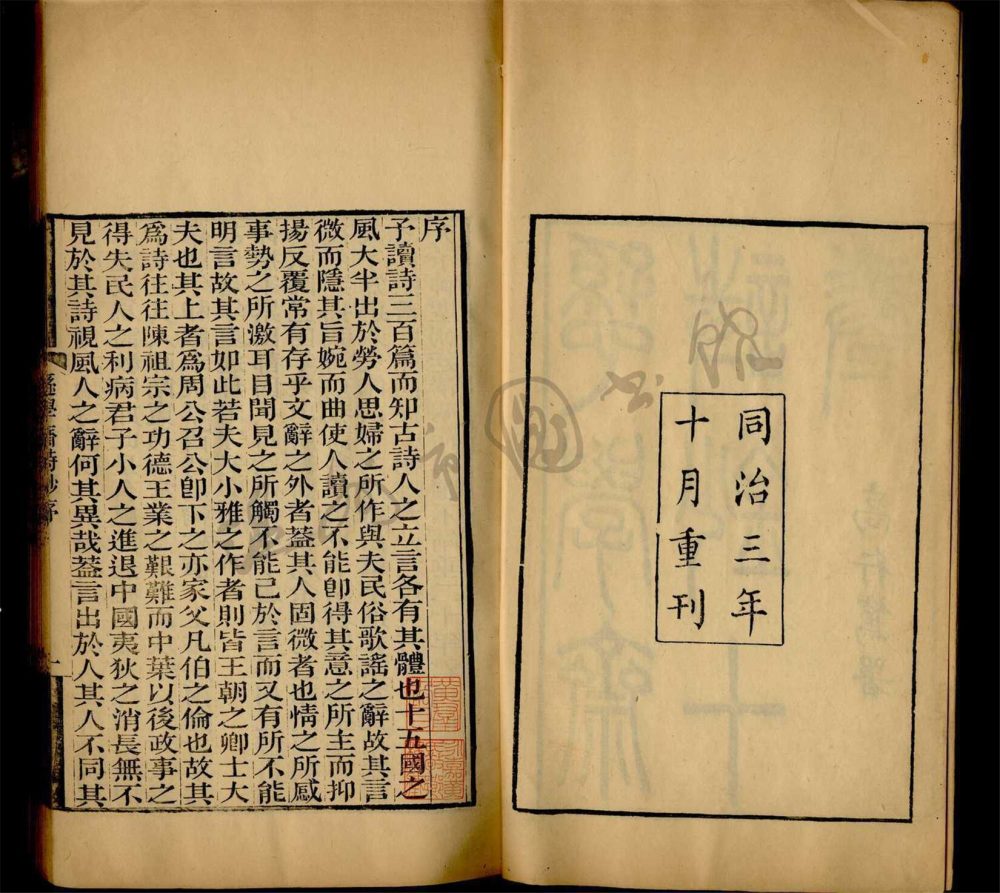 同治三年
十月重刊
序
予讀詩三百篇而知古詩人之立言各有其體也十五國之
風大半出於勞人思婦之所作與夫民俗歌謠之辭故其言
微而隱其旨婉而曲使人讀之不能卽得其意之所主而抑
揚反覆常有存乎文辭之外者葢其人固微者也情之所感
事勢之所激耳目聞見之所觸不能已於言而又有所不能
明言故其言如此若夫大小雅之作者則皆王朝之卿士大
夫也其上者爲周公召公卽下之亦家父凡伯之倫也故其
爲詩往往陳祖宗之功德王業之艱難而中葉以後政事之
得失民人之利病君子小人之進退中國夷狄之消長無不
見於其詩視風人之辭何其異哉葢言出於人其人不同其
遜學齋詩鈔序
一